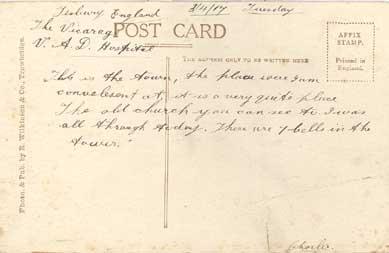 Tisbury England 3/4/17 Tuesday
The Vicarage
POST CARD
V. A. D. Hospital
AFFIX
STAMP.
Printed in
England.
THE ADDRESS ONLY TO BE WRITTEN HERE
This is the town, the place were I am
convelesent at, it is a very quite place
The old church you can see to. I was
all through today. There are 7 bells in the
tower."
Charlie.
Photo. & Pub. by R. Wilkinson & Co., Trowbridge.